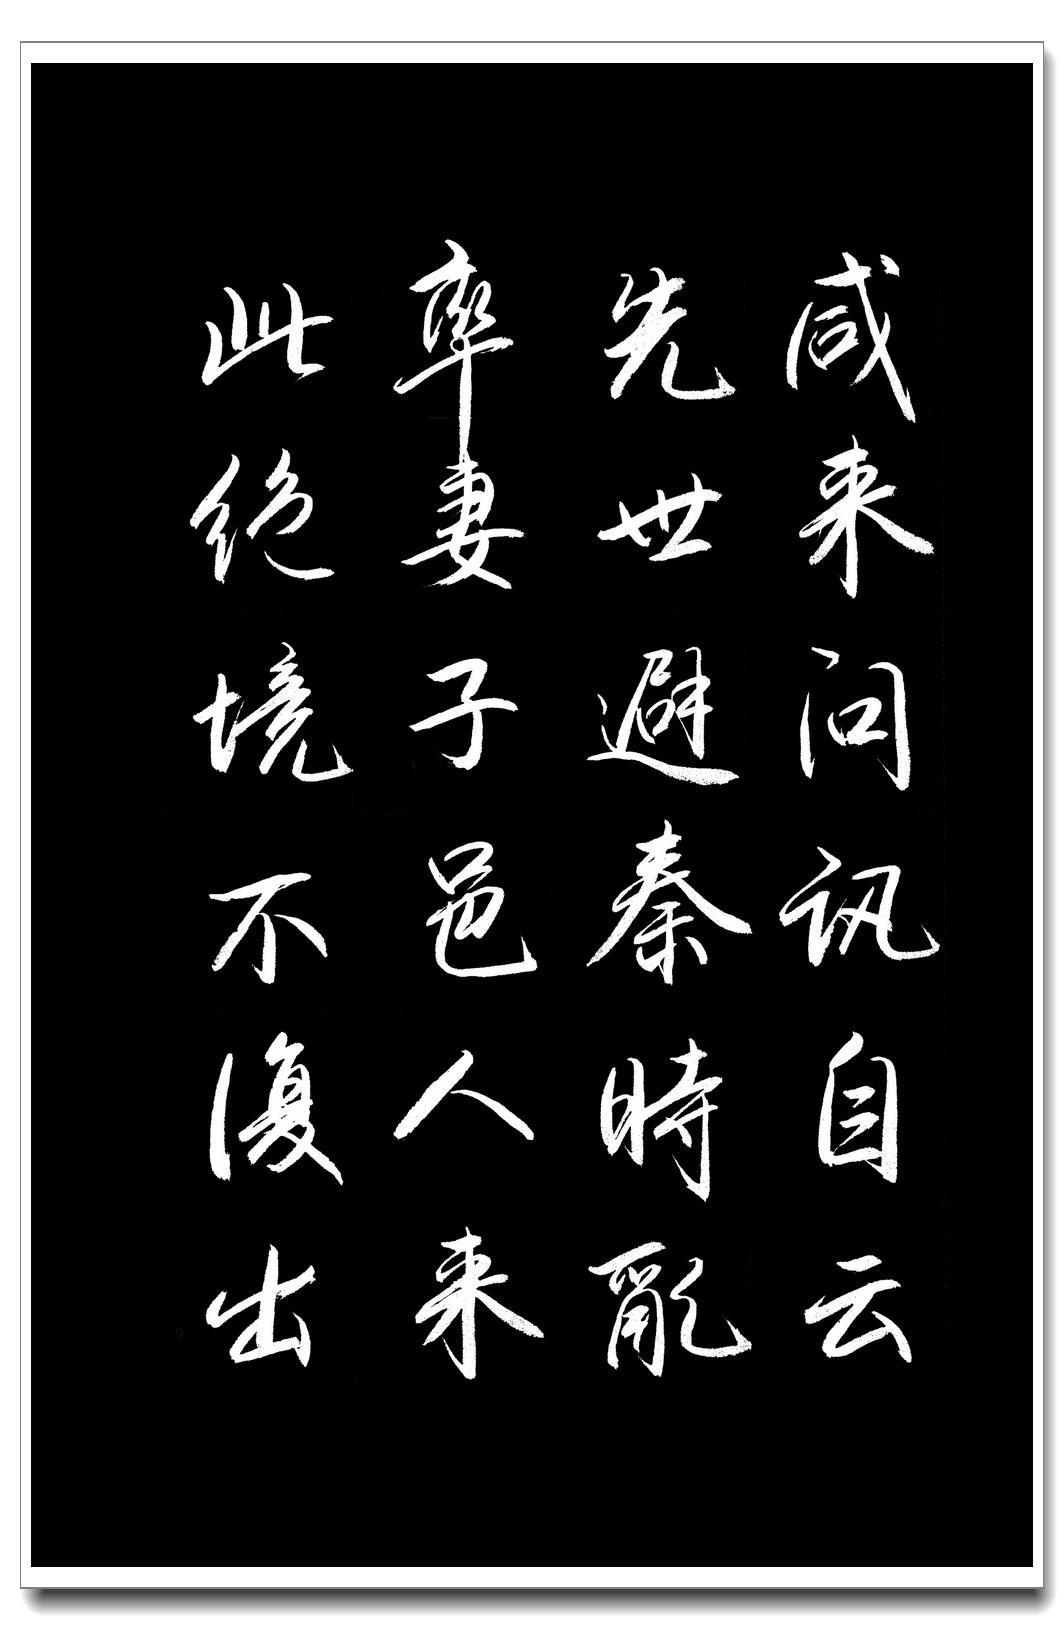 咸来问讯自云
先世避秦時亂
率妻子邑人来
此絶境不復出